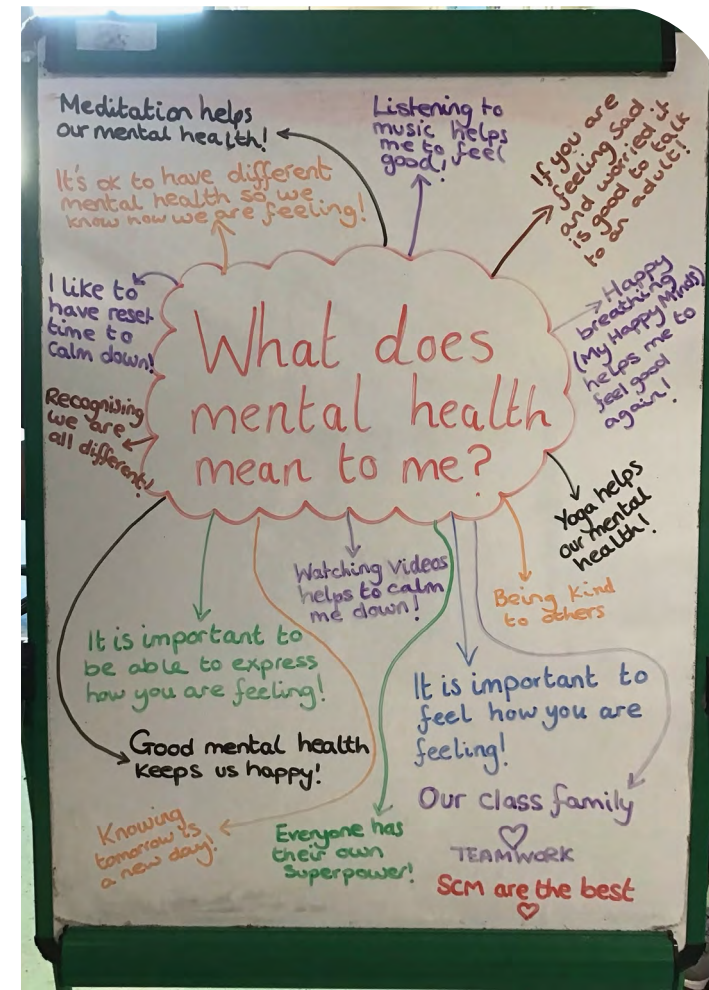 Meditation helps
our mental health!
Listening to
music helps
me to feel
good!
If you are
feeling sad
and worried it
is good to talk
to an adult!
It's ok to have different
mental health so we
know how we are feeling!
I like to
have reset
time to
calm down!
Happy
breathing
(My Happy Minds)
helps me to
feel good
again!
What does
mental health
mean to me?
Recognising
we are
all different!
Yoga helps
our mental
health!
Watching videos
helps to calm
me down!
Being kind
to others
It is important to
be able to express
how you are feeling!
It is important to
feel how you are
feeling!
Good mental health
keeps us happy!
Our class family
Knowing
tomorrow is
a new day!
Everyone has
their own
superpower!
TEAMWORK
SCM are the best